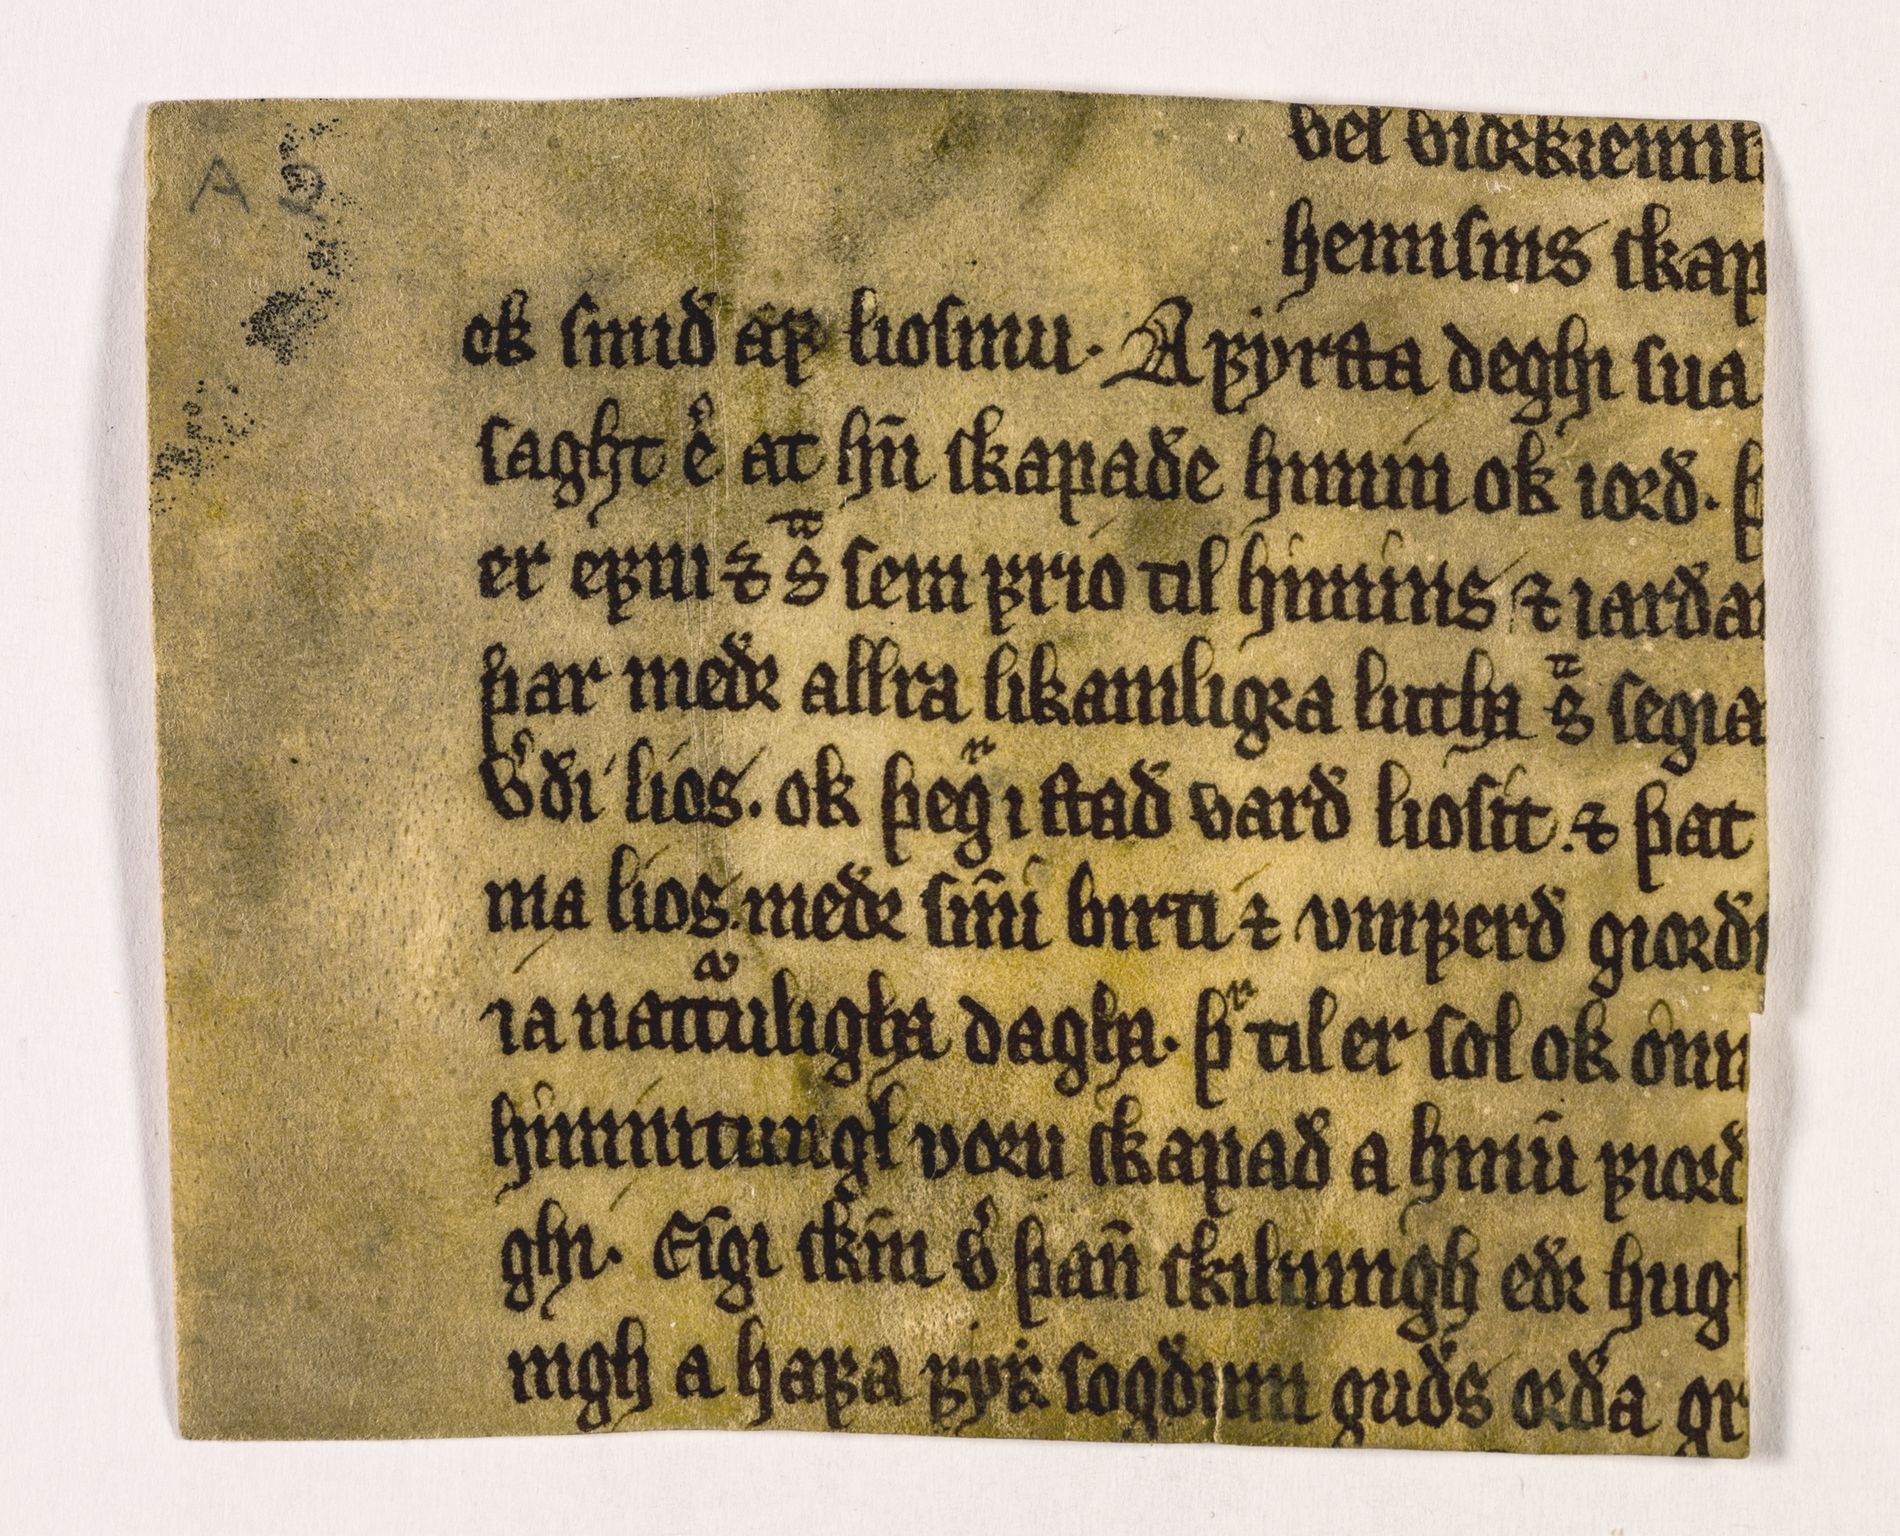 vel viðrkiemili
hemisins skap
ok smið aꝼ liosinu. A ꝼyrsta deghi sua
saght e͛ at hn̄ skapaðe himin ok iorð. þ
er eꝼni ⁊ sͣ sem ꝼrio til himins ⁊ iarðar
þar meðr allra likamligra lutha sͣ segia
v͛ði lios. ok þegͬ i stað varð liosit. ⁊ þat
ma lios. meðr sin̄i birti ⁊ vmꝼerð giorði
ia natturuligha dagha. þͬ til er sol ok onn
himintungl voru skapað a himū ꝼiorð
ghi. Eīgi skm̄ v͛ þan̄ skilningh eðr hug
ingh a haꝼa ꝼyr sogðum guðs orða gr